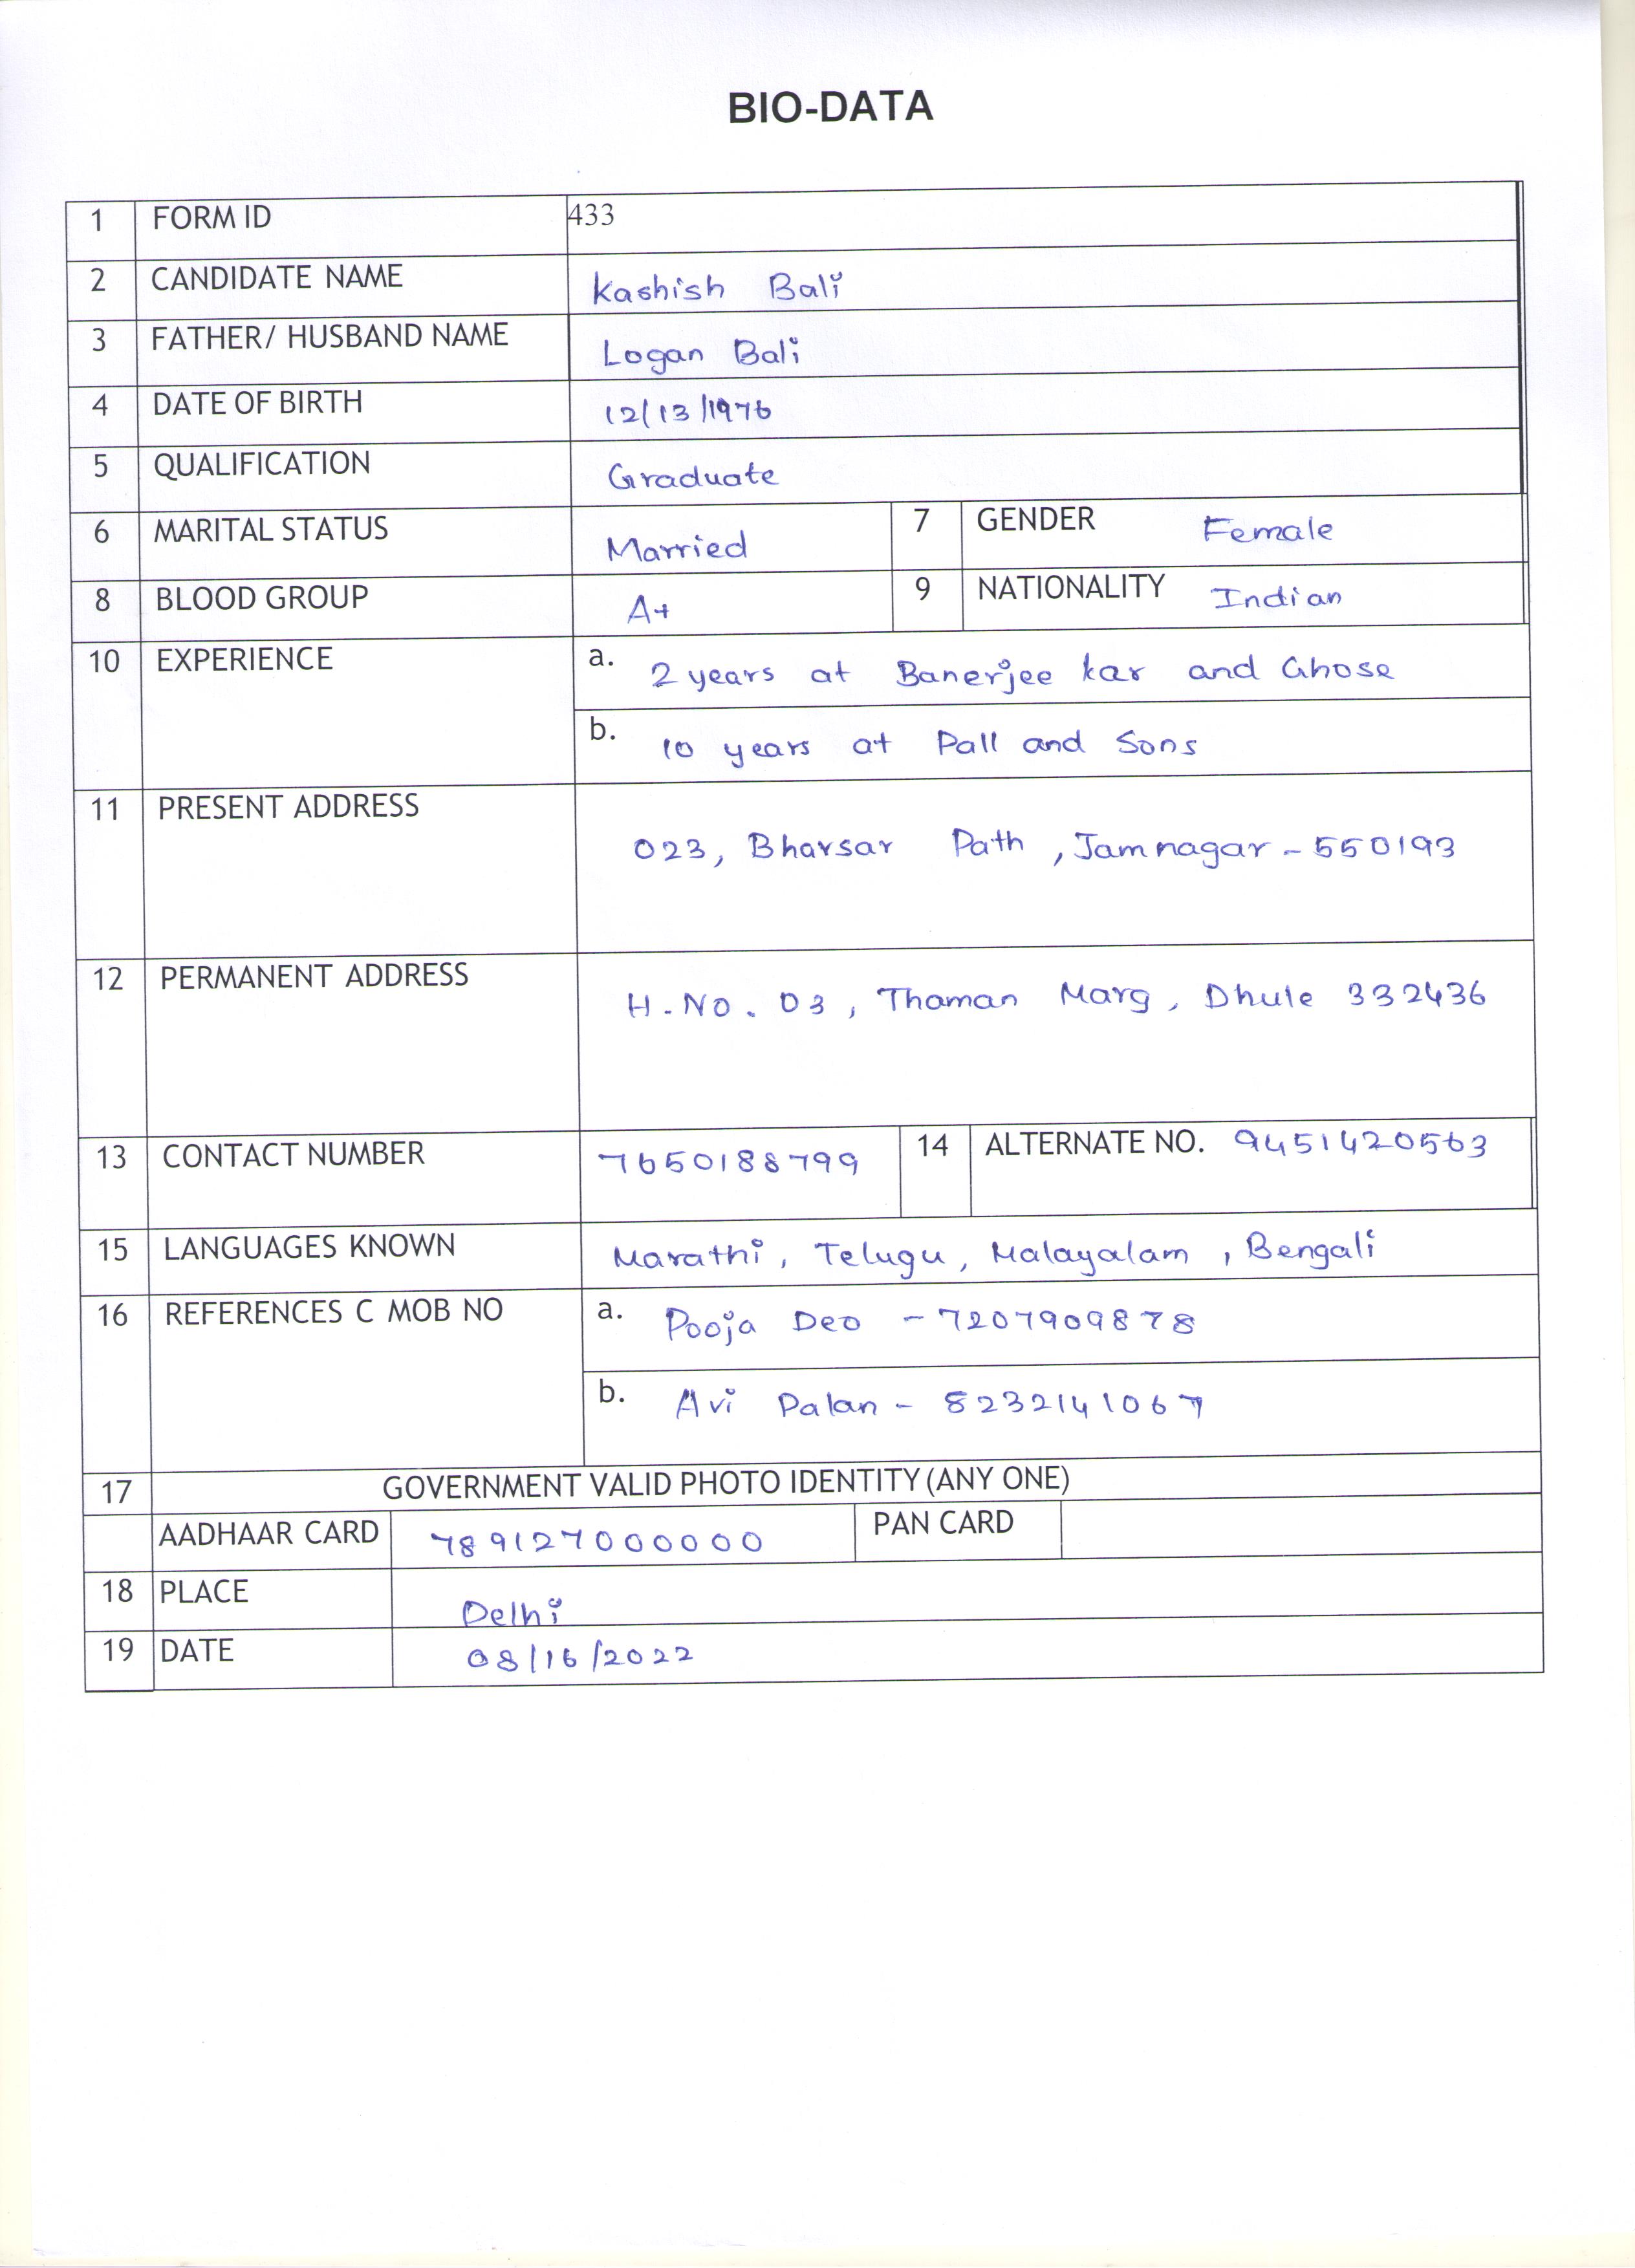 BIO-DATA
1 FORM ID 433
2 CANDIDATE NAME Kashish Bali
3 FATHER/ HUSBAND NAME Logan Bali
4 DATE OF BIRTH 12/13/1976
5 QUALIFICATION Graduate
6 MARITAL STATUS Married 7 GENDER Female
8 BLOOD GROUP A+ 9 NATIONALITY Indian
10 EXPERIENCE a. 2 years at Banerjee kar and Ghose
b. 10 years at Pall and Sons
11 PRESENT ADDRESS 023, Bhavsar Path, Jamnagar - 550193
12 PERMANENT ADDRESS H.No. 03, Thaman Marg, Dhule 332436
13 CONTACT NUMBER 7650188799 14 ALTERNATE NO. 9451420563
15 LANGUAGES KNOWN Marathi, Telugu, Malayalam, Bengali
16 REFERENCES C MOB NO a. Pooja Deo - 7207909878
b. Avi Palan - 8232141067
17 GOVERNMENT VALID PHOTO IDENTITY (ANY ONE)
AADHAAR CARD 789127000000 PAN CARD
18 PLACE Delhi
19 DATE 08/16/2022